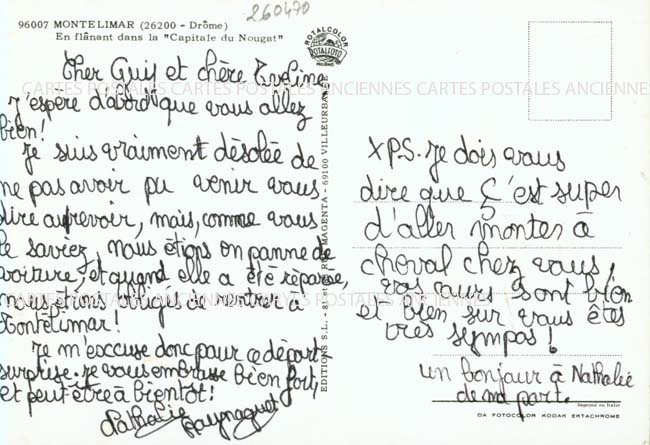 260470
96007 MONTELIMAR (26200 - Drôme)
En flânant dans la "Capitale du Nougat"
ROTALCOLOR
ROTALFOTO
MILANO
CARTES POSTALES ANCIENNES CARTES POSTALES ANCIENNES CARTES POSTALES ANCIENNES
Cher Guy et chère Eveline
J'espère d'abord que vous allez
bien!
Je suis vraiment désolée de
ne pas avoir pu venir vous
dire aurevoir, mais, comme vous
le saviez, nous étions en panne de
voiture, et quand elle a été réparée,
nous étions obligés de rentrer à
Montélimar!
Je m'excuse donc pour ce départ
surprise. Je vous embrasse bien fort,
et peut-être à bientôt!
Nathalie
EDITIONS S.L. - MAGENTA - 69100 VILLEURBANNE
X P.S. Je dois vous
dire que ç'est super
d'aller monter à
cheval chez vous,
vos cours sont bien
et bien sur vous êtes
très sympas!
un bonjour à Nathalie
de ma part.
Imprimé en Italie
DA FOTOCOLOR KODAK EKTACHROME